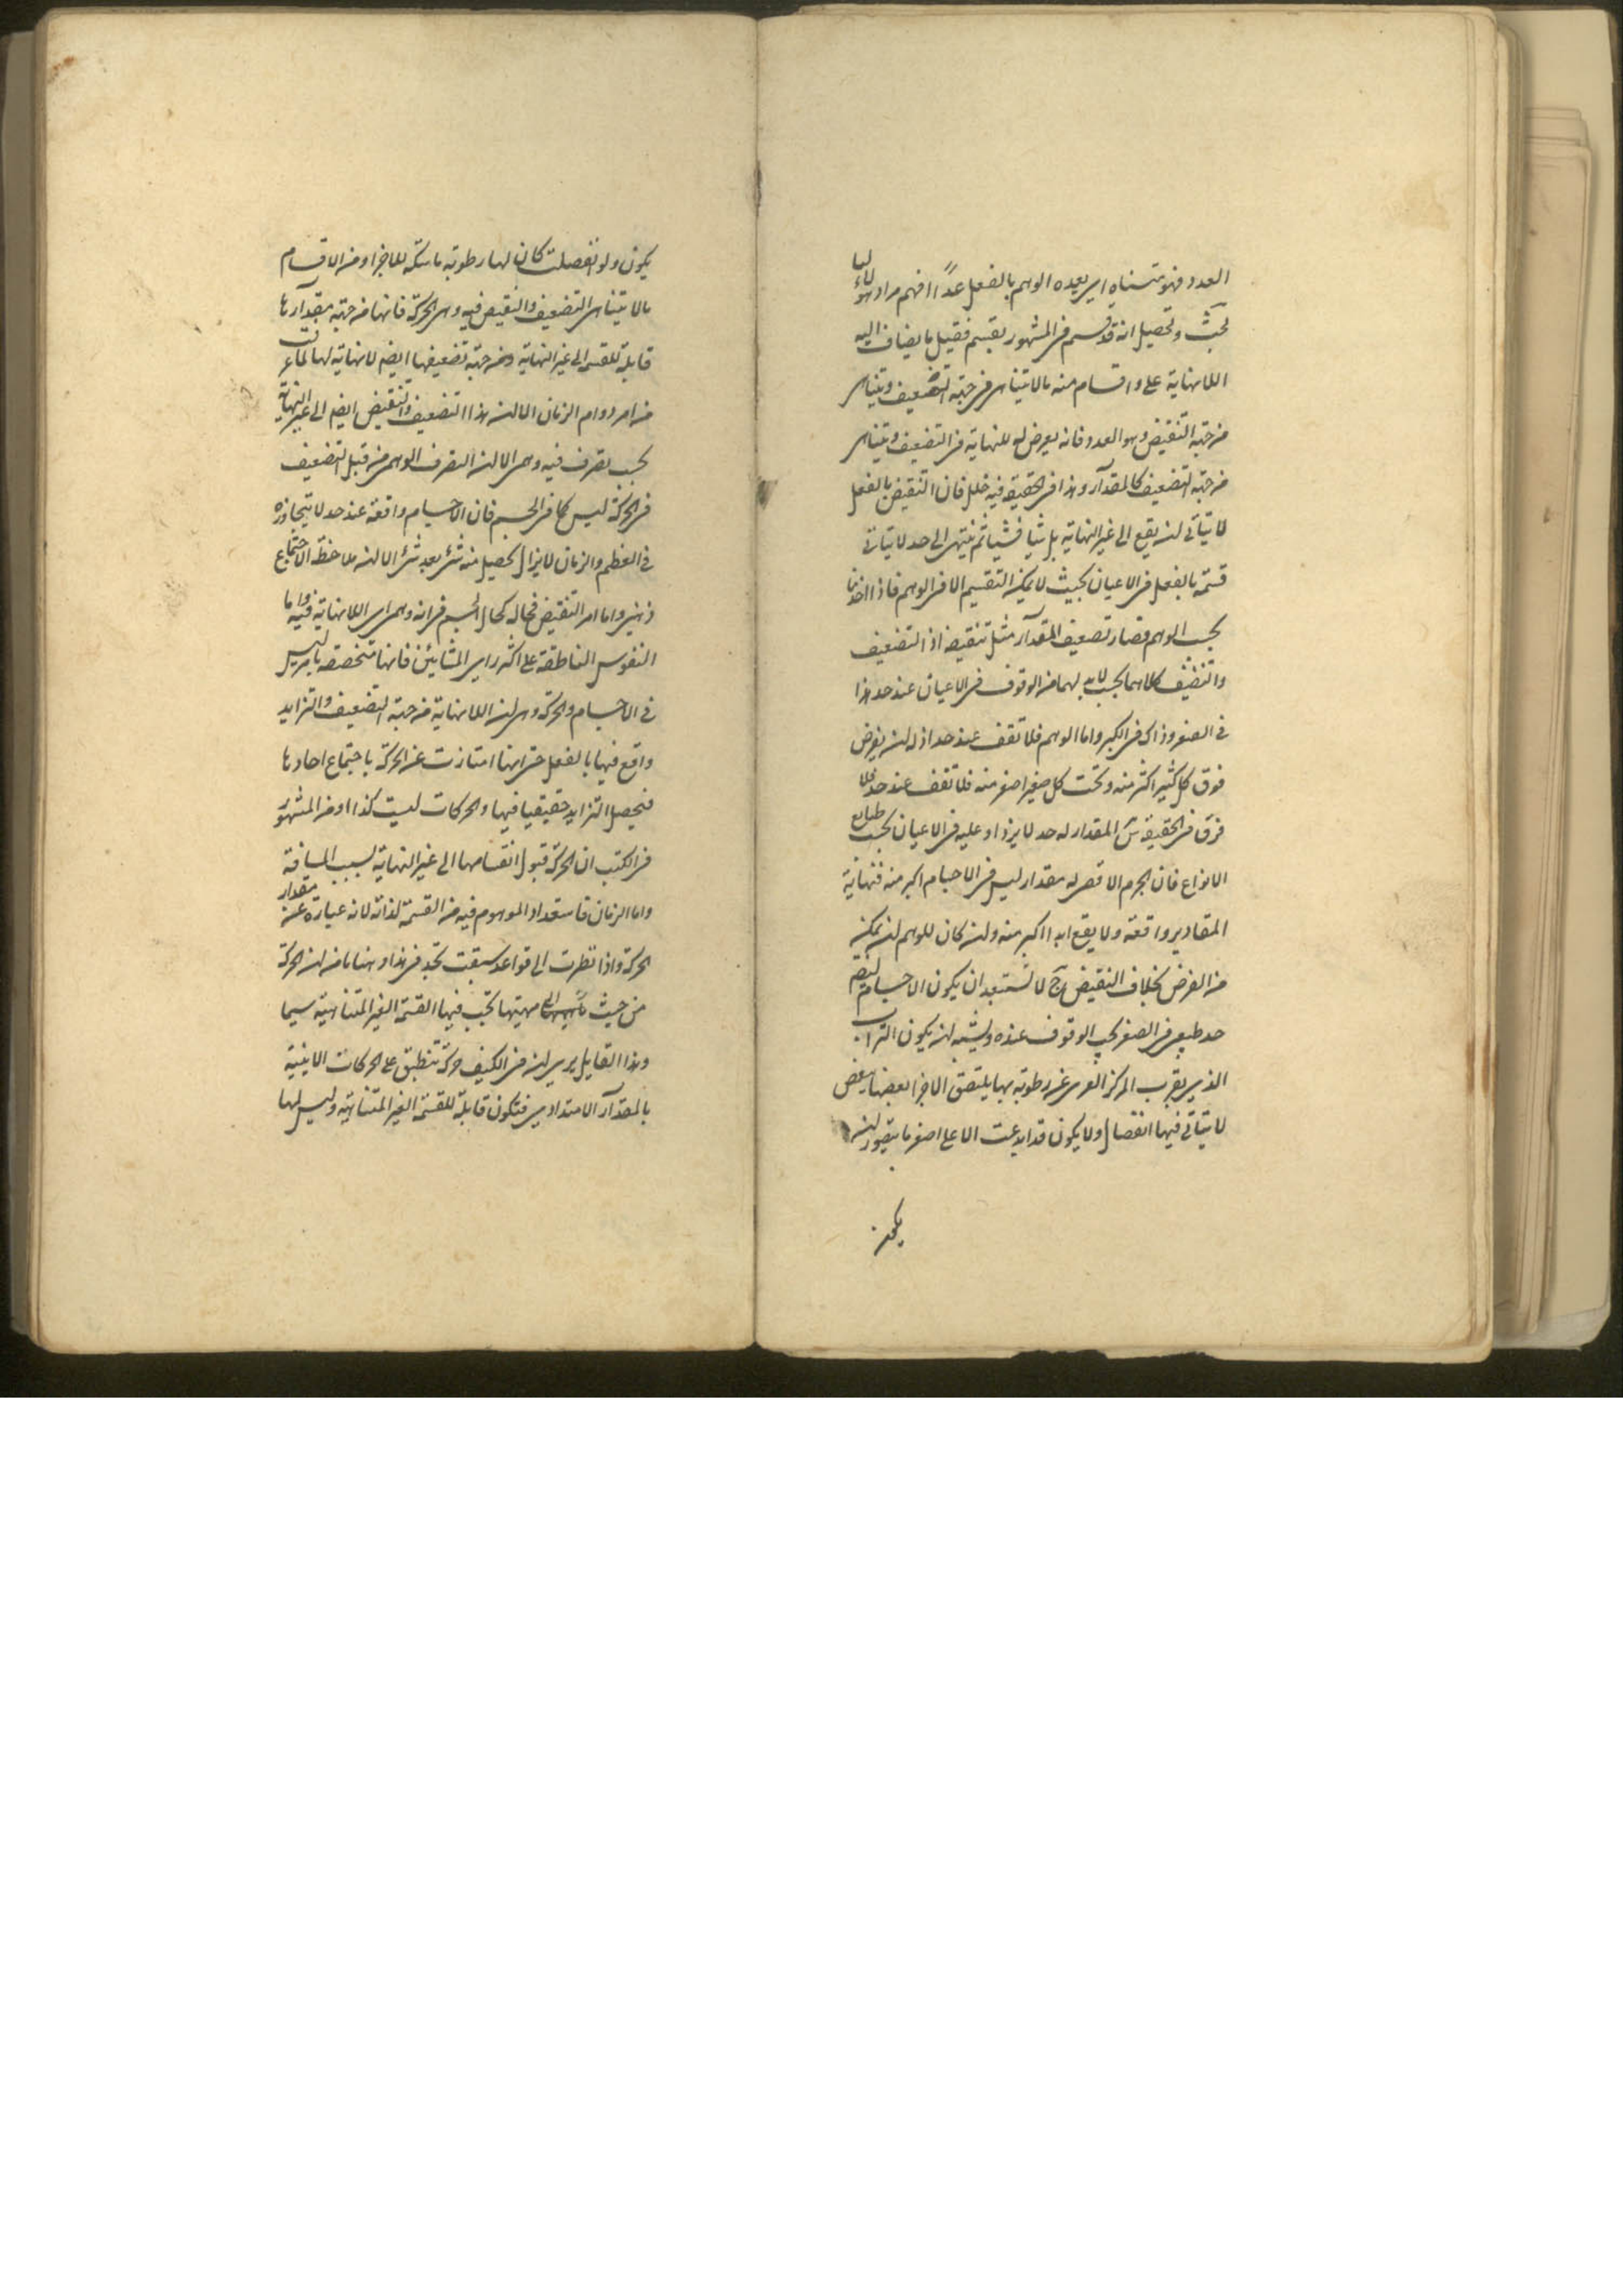 العدد فهو متناه اى يعده الوهم بالفعل عدًّا افهم مراد هولاء لنا
بحث وتحصيل انه قد قسم فى المشهور بقسم فقيل ما يضاف اليه
اللانهاية على اقسام منه ما لا يتناهى فى جهة التضعيف ويتناهى
من جهة التنقيض وهو العدد فانه يعرض له للنهاية فى التضعيف ويتناهى
من جهة التضعيف كالمقدار وهذا فى الحقيقة فيه خلل فان التنقيض بالفعل
لا يتأتى لن يقع الى غير النهاية بل شيا فشيا ثم ينتهى الى حد لا يتأتى
قسمته بالفعل فى الاعيان بحيث لا يمكن التقسيم الا فى الوهم فاذا اخذنا
بحسب الوهم فصار تضعيف المقدار مثل تنقيضه اذ التضعيف
والتنضيف كلاهما يجب لابد لهما من الوقوف فى الاعيان عند حد هذا
فى الصغر وذاك فى الكبر واما الوهم فلا تقف عند حد اذ له لن يفرض
فوق كل كثير اكثر منه وتحت كل صغير اصغر منه فلا تقف عند حد فلا
فرق فى الحقيقة المقدار له حد لا يزداد عليه فى الاعيان بحسب طبايع
الانواع فان الجرم الاقصى له مقدار ليس فى الاجسام اكبر منه فنهاية
المقادير واقعة ولا يقع ابدا اكبر منه ولن كان للوهم لن يمكنه
من الفرض بخلاف النقيض لا تستبعد ان يكون الاجسام
حد طبيعى فى الصغر يجب الوقوف عنده ويشبه لن يكون التراب
الذى يقرب المركز العرى عن رطوبة بها يلتصق الاجزا بعضها ببعض
لا يتأتى فيها انفصال ولا يكون قد ابدعت الا على اصغر ما يتصور لن
يكون
يكون ولو انفصلت كان لها رطوبة ماسكة للاجزا ومن الاقسام
ما لا يتناهى التضعيف والتنقيض فيه وهى الحركة فانها من جهة مقدارها
قابلة للقسمة الى غير النهاية ومن جهة تضعيفها ايضم لا نهاية لها لما عرفت
من امر دوام الزمان الا لن هذا التضعيف والتنقيض ايضم الى غير النهاية
بحسب تصرف فيه وهمى الا لن التصرف الوهمى من قبل التضعيف
فى الحركة ليس كما فى الجسم فان الاجسام واقعة عند حد لا يتجاوزه
فى العظم والزمان لا يزال يحصل منه شئ بعد شئ الا لن ملاحظة الاجتماع
ذهنى واما امر التنقيض فحاله كحال الجسم فى انه وهمى اى اللانهاية فيه واما
النفوس الناطقة على اكثر راى المشائين فانها متخصصة بامر ليس
فى الاجسام والحركة وهى لن اللانهاية من جهة التضعيف والتزايد
واقع فيها بالفعل حتى انها امتازت عن الحركة باجتماع احادها
فيحصل التزايد حقيقيا فيها والحركات ليست كذا ومن المشهور
فى الكتب ان الحركة قبول انقسامها الى غير النهاية بسبب المسافة
واما الزمان فاستعداد الموهوم فيه من القسمة لذاته لانه عبارة عن مقدار
الحركة واذا نظرت الى قواعد سبقت تجد فى هذا وهنا ما من لن الحركة
من حيث مهيتها يجب فيها القسمة الغير المتناهية سيما
وهذا القايل يرى لن فى الكيف حركة تنطبق على الحركات الاينية
بالمقدار الامتدادى فتكون قابلة للقسمة الغير المتناهية وليس لها